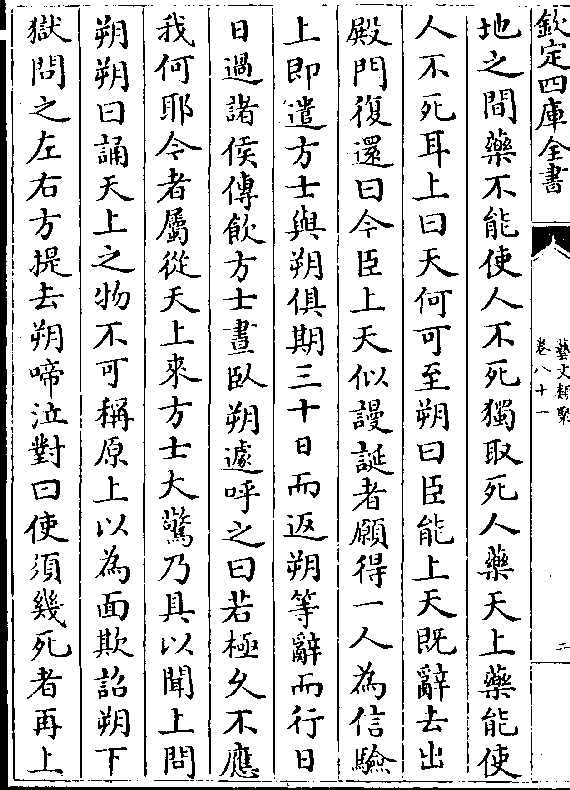 欽定四庫全書
藝文類聚
卷八十一
二
地之間藥不能使人不死獨取死人藥天上藥能使
人不死耳上曰天何可至朔曰臣能上天既辭去出
殿門復還曰今臣上天似謾誕者願得一人為信驗
上即遣方士與朔俱期三十日而返朔等辭而行日
日過諸侯傳飲方士晝臥朔遽呼之曰若極久不應
我何耶今者屬從天上來方士大驚乃具以聞上問
朔朔曰誦天上之物不可稱原上以為面欺詔朔下
獄問之左右方提去朔啼泣對曰使須幾死者再上